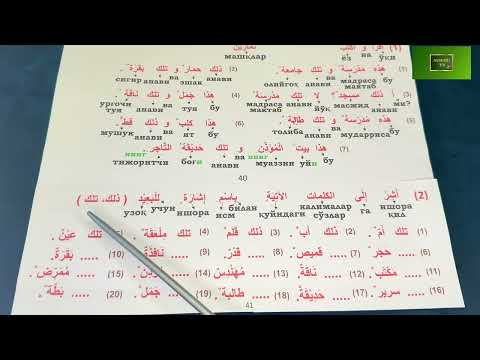 (1) اِقْرَأْ وَ اكْتُبْ
ёз ва ўқи
машқлар
(2) هٰذِهِ مَدْرَسَةٌ وَ تِلْكَ جَامِعَةٌ. (2) ذٰلِكَ حِمَارٌ وَ تِلْكَ بَقَرَةٌ.
бу мадраса ва анави
сигир анави ва эшак анави
(3) أَ ذٰلِكَ مَسْجِدٌ؟ لَا تِلْكَ مَدْرَسَةٌ. (4) هٰذَا جَمَلٌ وَ تِلْكَ نَاقَةٌ.
ми? анави масжид йўқ анави мадраса мактаб
бу туя ва анави урғочи туя
هٰذِهِ مُدَرِّسَةٌ وَ تِلْكَ طَالِبَةٌ. (6) هٰذَا كَلْبٌ وَ تِلْكَ قِطٌّ.
бу мударриса ва анави толиба
бу ит ва анави мушук
هٰذَا بَيْتُ الْمُؤَذِّنِ وَ تِلْكَ حَدِيقَةُ التَّاجِرِ.
бу уйи муаззин нинг ва анави боғи тижоратчи нинг
40
(2) أَشِرْ إِلَى الْكَلِمَاتِ الْآتِيَةِ بِاسْمِ إِشَارَةٍ لِلْبَعِيْدِ ( ذٰلِكَ، تِلْكَ )
қил ишора га калималар сўзлар қуйидаги билан исм ишора учун узоқ
(1) تِلْكَ أُمٌّ. (2) ذٰلِكَ أَبٌ. (3) ذٰلِكَ قَلَمٌ. (4) تِلْكَ مِلْعَقَةٌ. (5) تِلْكَ عَيْنٌ.
(6) ..... حَجَرٌ. (7) ..... قَمِيصٌ. (8) ..... قِدْرٌ. (9) ..... نَافِذَةٌ. (10) ..... بَقَرَةٌ.
(11) ..... مَكْتَبٌ. (12) ..... نَاقَةٌ. (13) ..... مُهَنْدِسٌ. (14) ..... (15) ..... مُمَرِّضٌ.
(16) ..... سَرِيرٌ. (17) ..... حَدِيْقَةٌ. (18) ..... طَالِبَةٌ. (19) ..... جَمَلٌ. (20) ..... بَطَّةٌ.
41